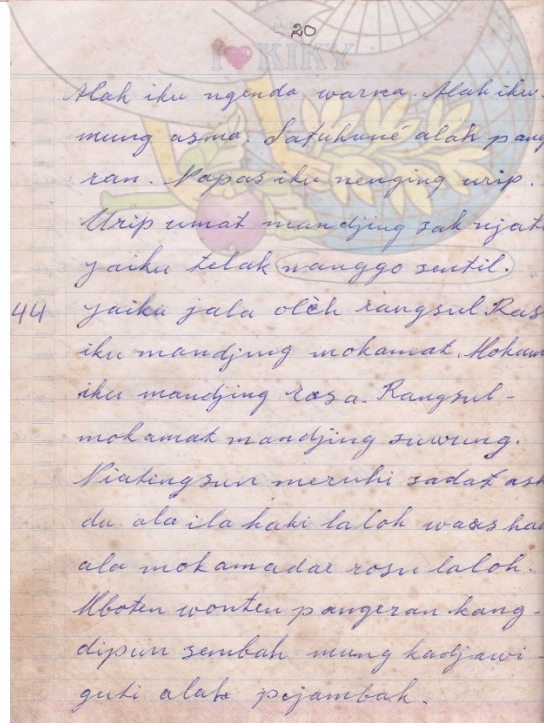 20
I ❤ KIKY
Alah iku ngenda warna. Alah iku
mung asma. Satuhuné alah pang
ran. Napas iku nenging urip.
Urip umat mandjing sak njat
jaiku telak manggo sentil.
44 jaiku jala olèh rangsul Ras
iku mandjing mokamat. Mokam
iku mandjing rasa. Rangsul-
mokamat mandjing suwung.
Niatingsun meruhi sadat ash
du ala ila haki laloh waas ha
ala mokamadar rosu laloh.
Mboten wonten pangeran kang-
dipun sembah mung kadjawi-
guti alah pijambak.